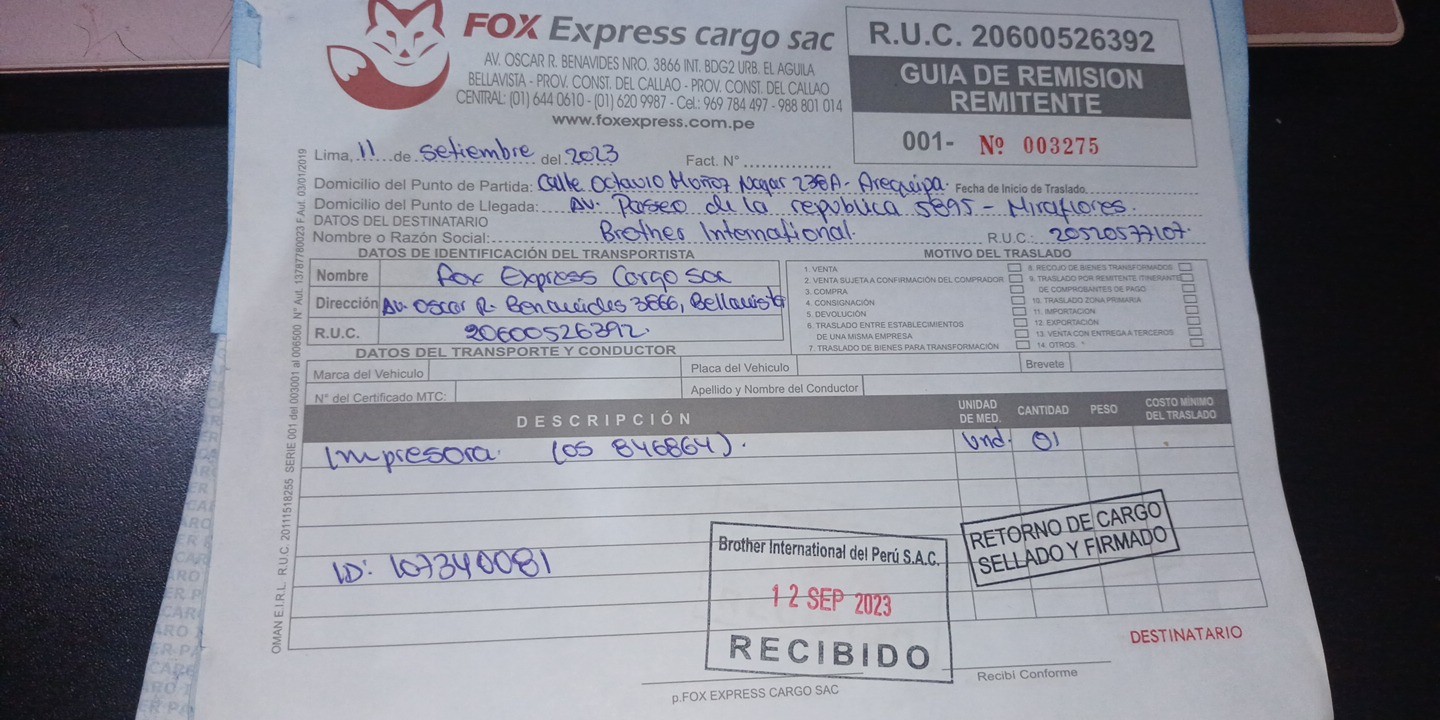 FOX Express cargo sac
AV. OSCAR R. BENAVIDES NRO. 3866 INT. BDG2 URB. EL AGUILA
BELLAVISTA - PROV. CONST. DEL CALLAO - PROV. CONST. DEL CALLAO
CENTRAL: (01) 644 0610 - (01) 620 9987 - Cel.: 969 784 497 - 988 801 014
www.foxexpress.com.pe
R.U.C. 20600526392
GUIA DE REMISION
REMITENTE
001- Nº 003275
Lima, 11 de setiembre del 2023 Fact. N°
Domicilio del Punto de Partida: Calle Octavio Muñoz Nagar 238A - Arequipa. Fecha de Inicio de Traslado
Domicilio del Punto de Llegada: AV. Paseo de la republica 5895 - Miraflores.
DATOS DEL DESTINATARIO
Nombre o Razón Social: Brother International. R.U.C.: 20520577107
DATOS DE IDENTIFICACIÓN DEL TRANSPORTISTA
Nombre Fox Express Cargo sac
Dirección Av. Oscar R. Benavides 3866, Bellavista
R.U.C. 20600526392
MOTIVO DEL TRASLADO
1. VENTA
2. VENTA SUJETA A CONFIRMACIÓN DEL COMPRADOR
3. COMPRA
4. CONSIGNACIÓN
5. DEVOLUCIÓN
6. TRASLADO ENTRE ESTABLECIMIENTOS
DE UNA MISMA EMPRESA
7. TRASLADO DE BIENES PARA TRANSFORMACIÓN
8. RECOJO DE BIENES TRANSFORMADOS
9. TRASLADO POR REMITENTE ITINERANTE
DE COMPROBANTES DE PAGO
10. TRASLADO ZONA PRIMARIA
11. IMPORTACIÓN
12. EXPORTACIÓN
13. VENTA CON ENTREGA A TERCEROS
14. OTROS
DATOS DEL TRANSPORTE Y CONDUCTOR
Marca del Vehiculo Placa del Vehículo Brevete
N° del Certificado MTC: Apellido y Nombre del Conductor
DESCRIPCIÓN UNIDAD DE MED. CANTIDAD PESO COSTO MÍNIMO DEL TRASLADO
Impresora. (OS 846864). Und. 01
ID: 107340081
Brother International del Perú S.A.C.
12 SEP 2023
RECIBIDO
RETORNO DE CARGO
SELLADO Y FIRMADO
DESTINATARIO
p.FOX EXPRESS CARGO SAC
Recibí Conforme
OMAN E.I.R.L. R.U.C. 20111518255 SERIE 001 del 003001 al 006500 N° Aut. 13787780023 F.Aut. 03/01/2019